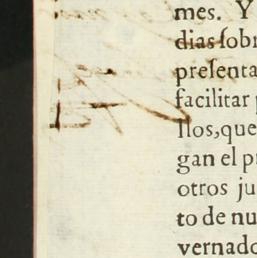 mes. Y
dias ſobr
preſenta
facilitar
llos,que
gan el p
otros ju
to de nu
vernado